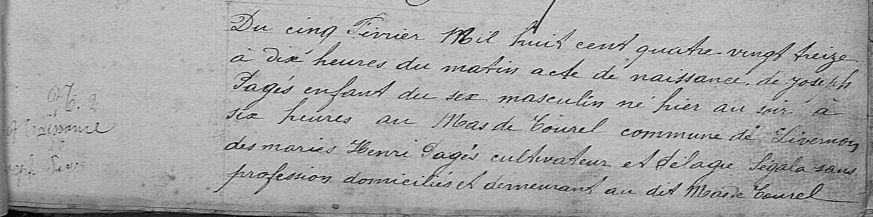 Du cinq Février Mil huit cent quatre-vingt treize
à dix heures du matin acte de naissance, de Joseph
Pagés enfant du sex masculin né hier au soir à
six heures au Mas de Courel commune de Livernon
des mariés Henri Pagés cultivateur et Pélagie Ségala sans
profession domiciliés et demeurant au dit Mas de Courel
N: 2
Naissance
Joseph Pagés